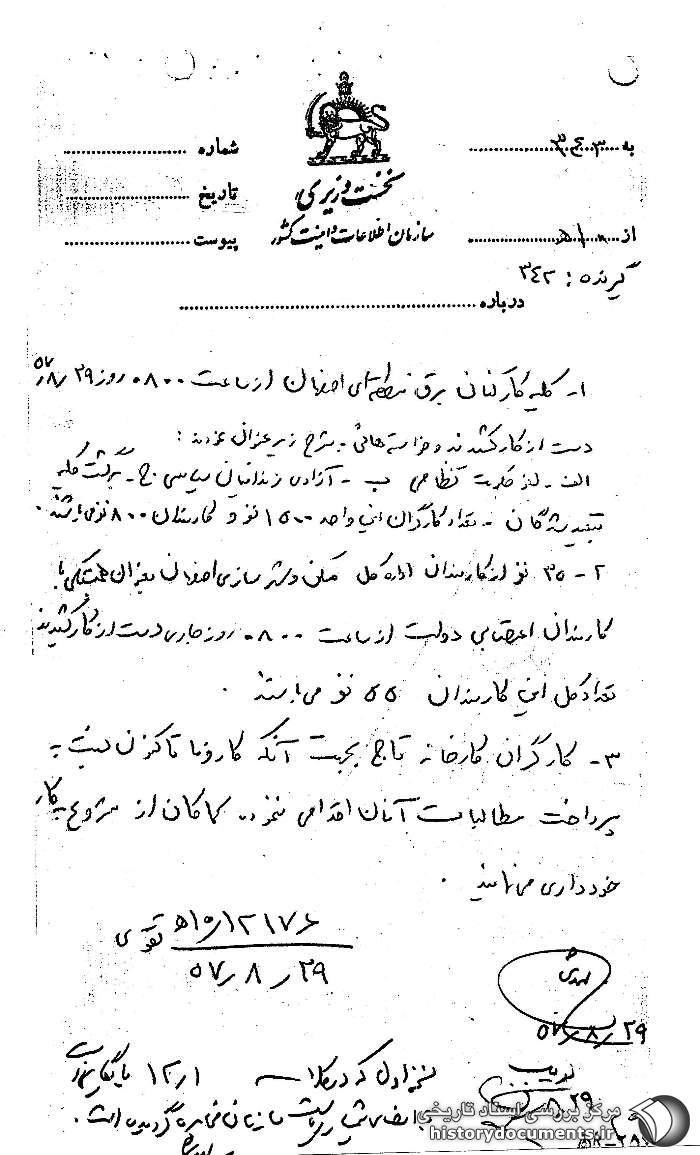 به ... ۳ ﻫ ۳
شماره
نخست وزیری
تاریخ
از ... ۱۰ ﻫ
سازمان اطلاعات و امنیت کشور
پیوست
گیرنده : ۳۴۲
درباره
۱- کلیه کارکنان برق منطقه‌ای اصفهان از ساعت ۰۸۰۰ روز ۵۷٫۸٫۲۹
دست از کار کشیدند و خواسته هائی بشرح زیر عنوان نمودند :
الف - لغو حکومت نظامی ب - آزادی زندانیان سیاسی ج - برگشت کلیه
تبعید شدگان - تعداد کارگران این واحد ۱۵۰۰ نفر و کارمندان ۸۰۰ نفر می‌باشند .
۲ - ۳۵ نفر از کارمندان اداره کل مسکن و شهر سازی اصفهان بعنوان همبستگی با
کارمندان اعتصابی دولت از ساعت ۰۸۰۰ روز جاری دست از کار کشیدند
تعداد کل این کارمندان ۵۵ نفر می‌باشند .
۳- کارگران کارخانه تاج بجهت آنکه کارفرما تاکنون نسبت به
پرداخت مطالبات آنان اقدامی ننموده کماکان از شروع بکار
خودداری می‌نمایند .
۱۰/۱۲۱۷۶ﻫ
تقوی
۵۷٫۸٫۲۹
۵۷٫۸٫۲۹
نسخه اول که در کلاسه ۱۲٫۱ بایگانی است
۸٫۲۹
سازمان مخابره گردیده است .
مرکز بررسی اسناد تاریخی
historydocuments.ir